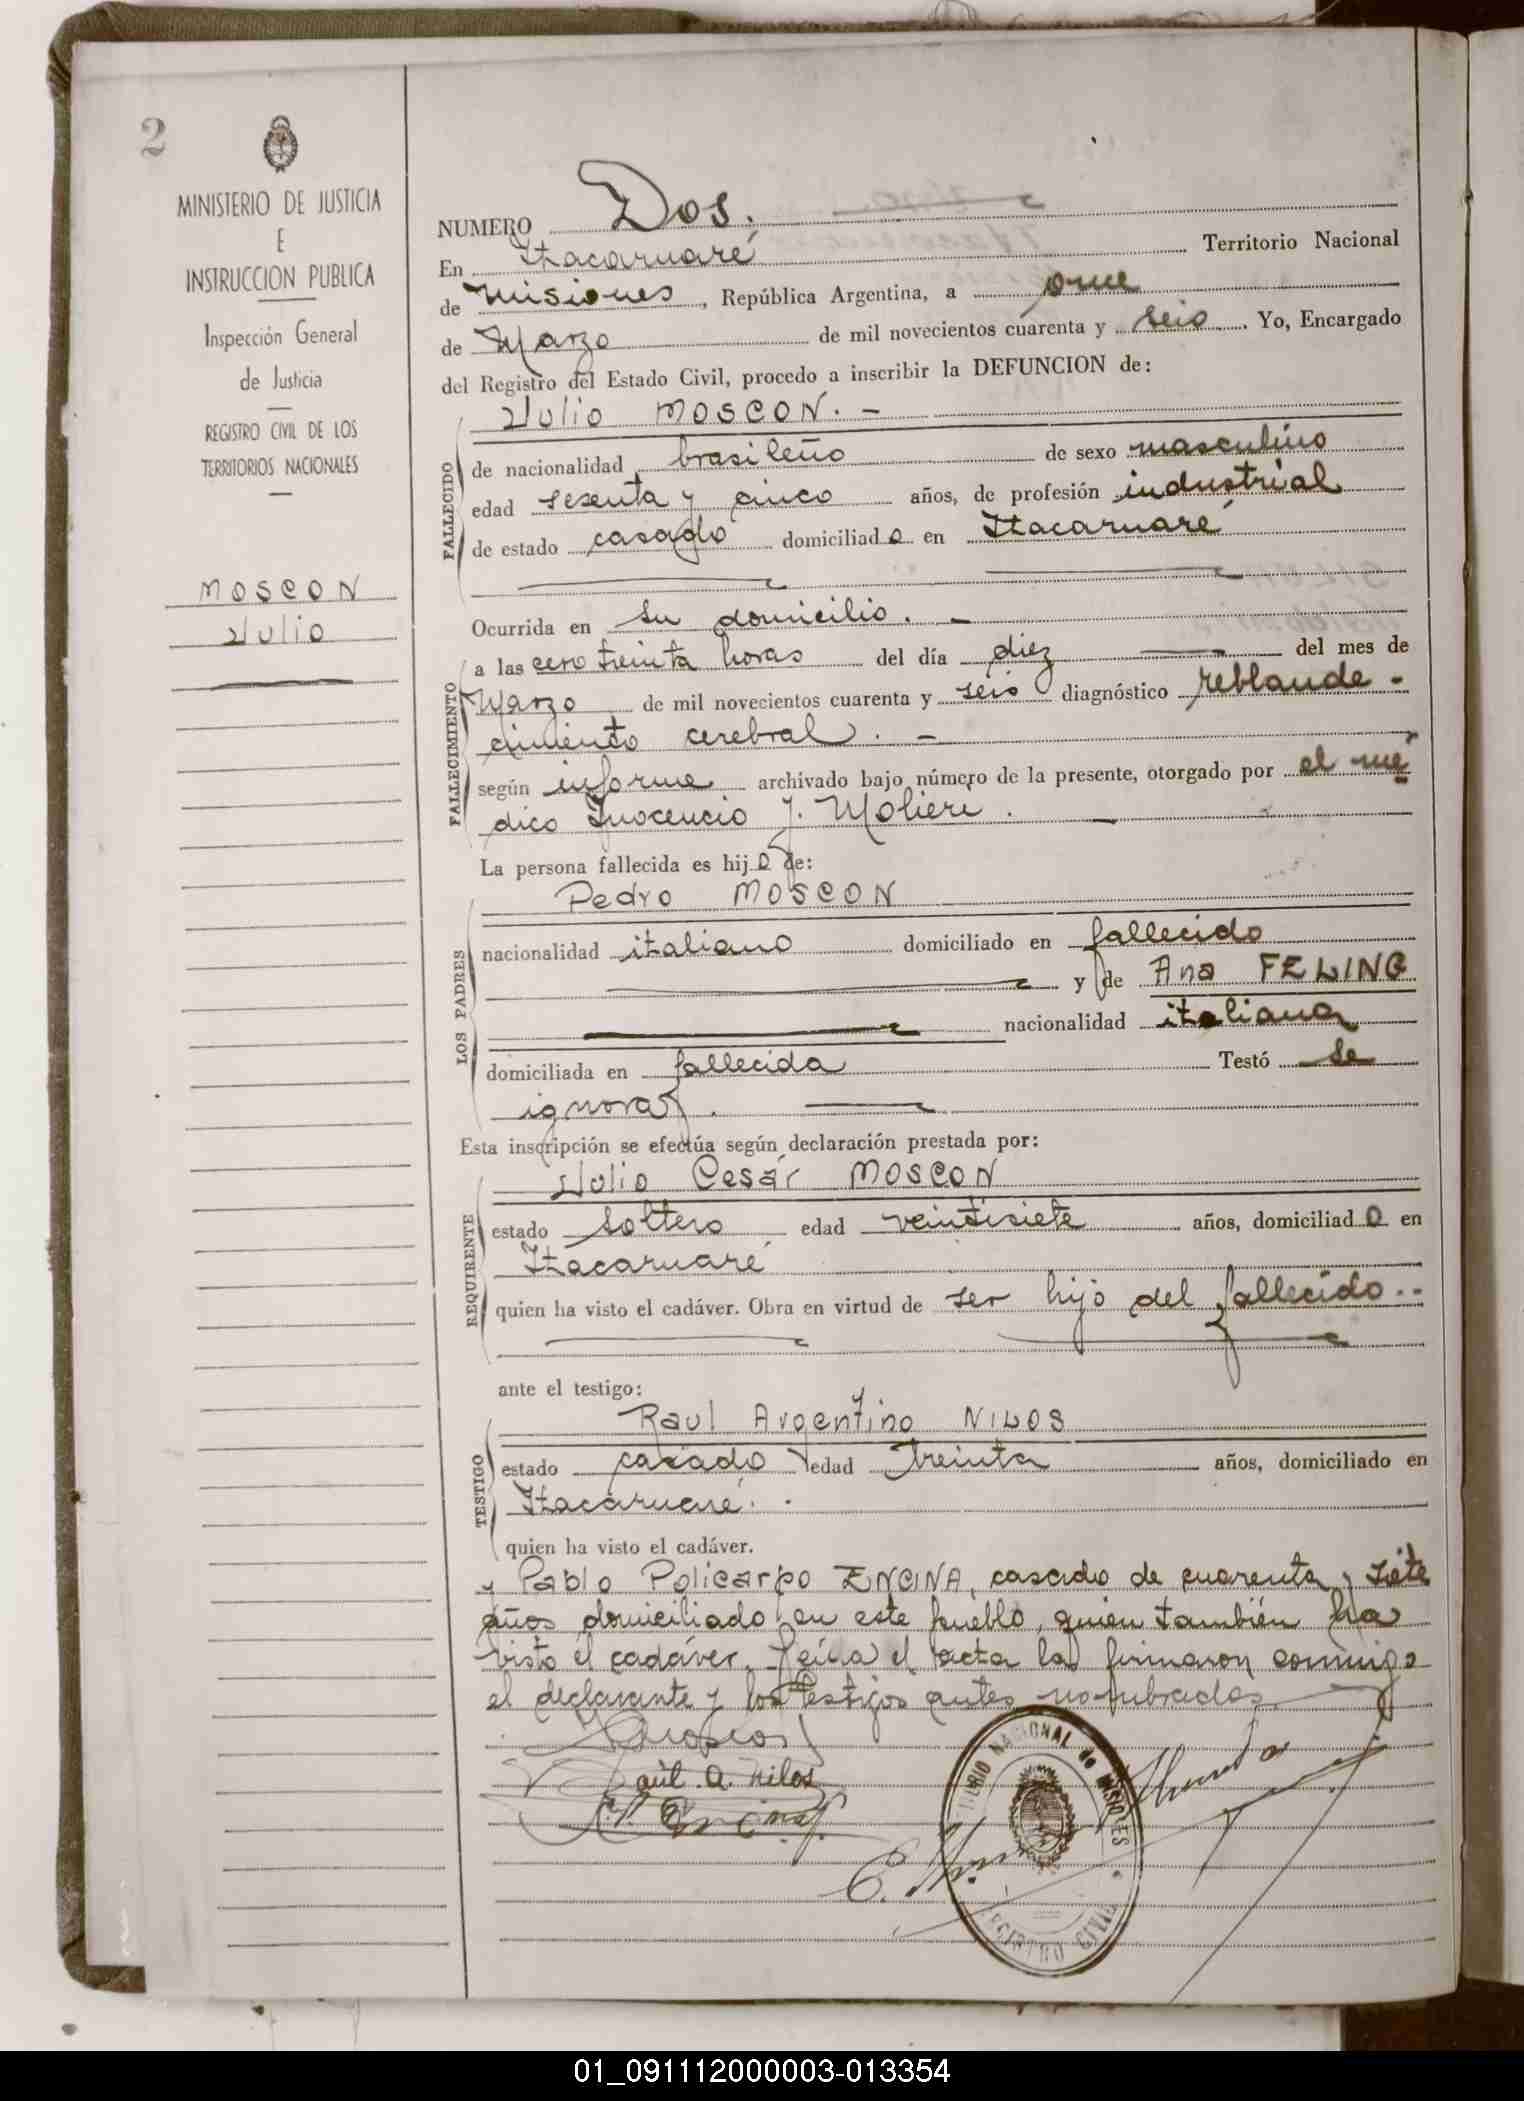 2
MINISTERIO DE JUSTICIA
E
INSTRUCCION PUBLICA
Inspección General
de Justicia
REGISTRO CIVIL DE LOS
TERRITORIOS NACIONALES
MOSCON
Julio
NUMERO Dos.
En Itacaruaré Territorio Nacional
de Misiones, República Argentina, a once
de Marzo de mil novecientos cuarenta y seis. Yo, Encargado
del Registro del Estado Civil, procedo a inscribir la DEFUNCION de:
Julio MOSCON. -
FALLECIDO
de nacionalidad brasileño de sexo masculino
edad sesenta y cinco años, de profesión industrial
de estado casado domiciliado en Itacaruaré
Ocurrida en su domicilio. -
FALLECIMIENTO
a las cero treinta horas del día diez del mes de
Marzo de mil novecientos cuarenta y seis diagnóstico reblande-
cimiento cerebral. -
según informe archivado bajo número de la presente, otorgado por el mé
dico Inocencio J. Molieri.
La persona fallecida es hijo de:
LOS PADRES
Pedro MOSCON
nacionalidad italiano domiciliado en fallecido
y de Ana FELING
nacionalidad italiana
domiciliada en fallecida Testó Se
ignora.
Esta inscripción se efectúa según declaración prestada por:
REQUIRENTE
Julio Cesár MOSCON
estado soltero edad veintisiete años, domiciliado en
Itacaruaré
quien ha visto el cadáver. Obra en virtud de ser hijo del fallecido..
ante el testigo:
TESTIGO
Raul Argentino NILOS
estado casado edad treinta años, domiciliado en
Itacaruaré.
quien ha visto el cadáver.
y Pablo Policarpo ENCINA, casado de cuarenta y siete
años domiciliado en este pueblo, quien también ha
visto el cadáver. Leída el acta la firmaron conmigo
el declarante y los testigos antes nombrados.
Raúl. A. Nilos
P. P. Encina
TERRITORIO NACIONAL de MISIONES
REGISTRO CIVIL
01_091112000003-013354